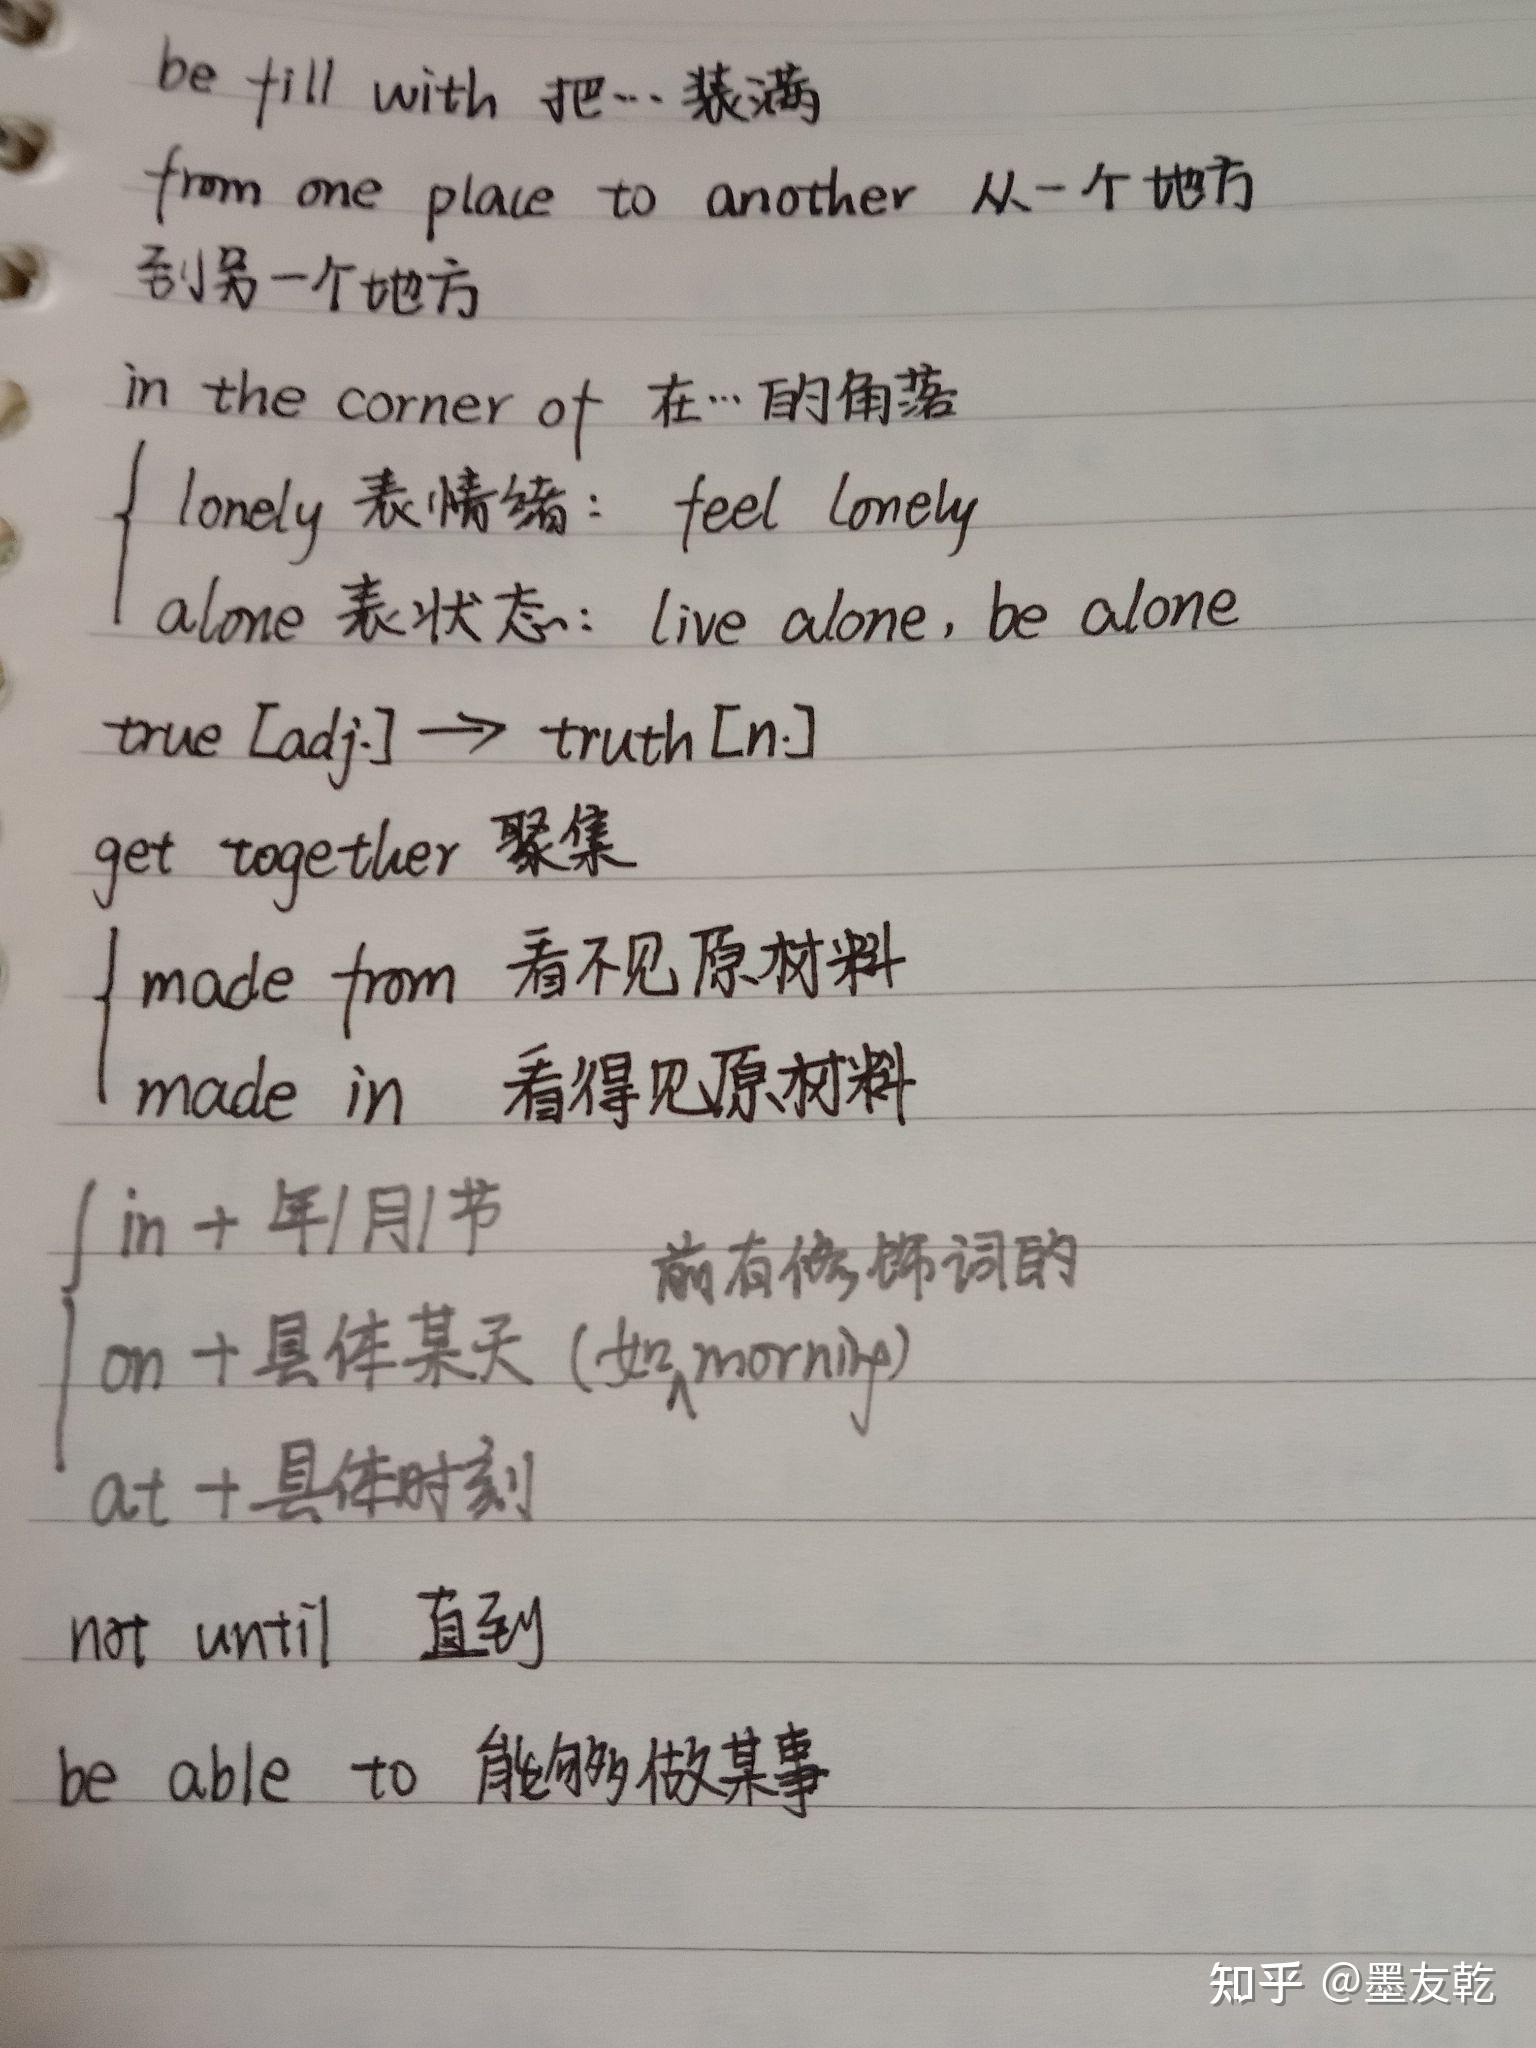 be fill with 把…装满
from one place to another 从一个地方
到另一个地方
in the corner of 在…的角落
lonely 表情绪: feel lonely
alone 表状态: live alone, be alone
true [adj.] → truth [n.]
get together 聚集
made from 看不见原材料
made in 看得见原材料
in + 年/月/节
前有修饰词的
on + 具体某天 (如∧morning)
at + 具体时刻
not until 直到
be able to 能够做某事
知乎 @墨友乾